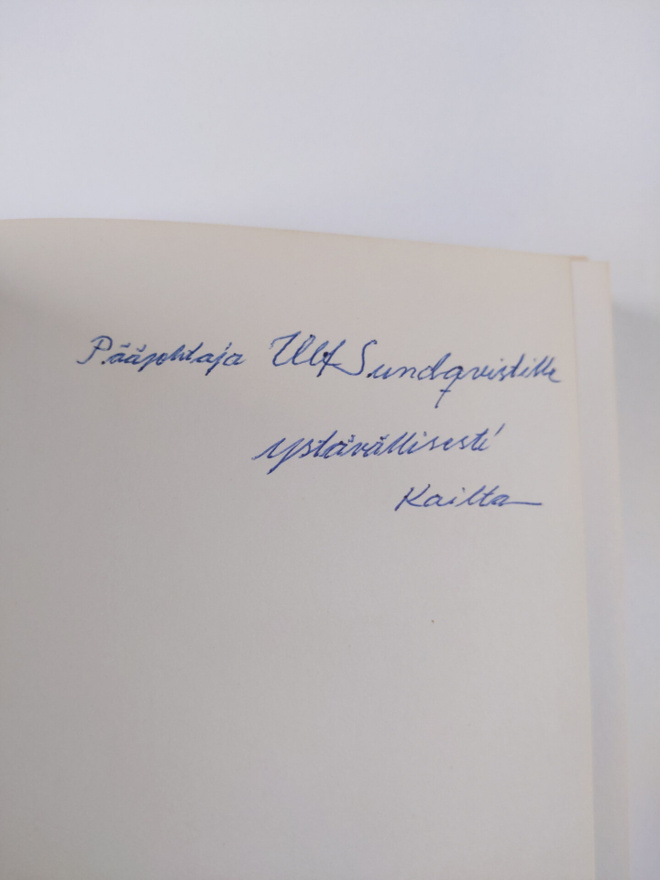 Pääjohtaja Ulf Sundqvistille
ystävällisesti
Kailta